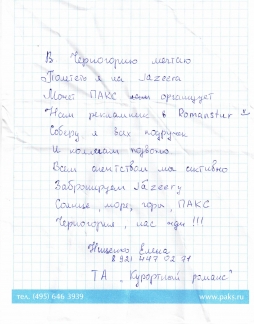 В Черногорию мечтаю
Полететь я на Jazeera
Может ПАКС нам организует
Нам рекламник в Romanstur
Соберу я всех подружек
И коллегам позвоню.
Всем агентством мы активно
Забронируем Jazeeru
Солнце, море, горы, ПАКС
Черногория, нас жди!!!
Елена
8 921 447 02 71
ТА "Курортный романс"
тел. (495) 646 3939
www.paks.ru